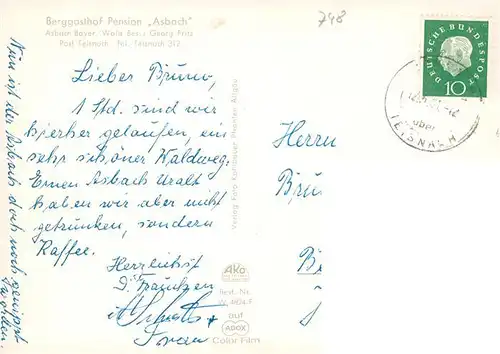 Berggasthof Pension „Asbach"
Asbach Bayer. Wald Bes.: Georg Fritz
Post Teisnach Tel. Teisnach 317
748
DEUTSCHE BUNDESPOST
10
über
TEISNACH
Lieber Bruno,
1 Std. sind wir
hierher gelaufen, ein
sehr schöner Waldweg.
Einen Asbach Uralt
haben wir aber nicht
getrunken, sondern
Kaffee.
Herzlichst
Frau
Nun ist der Asbach doch noch genippt
worden.
Verlag: Foto Pfronten Allgäu
Herrn
Bru
B
Ako
Best. Nr.
W 4804 F
auf
ADOX
Color Film